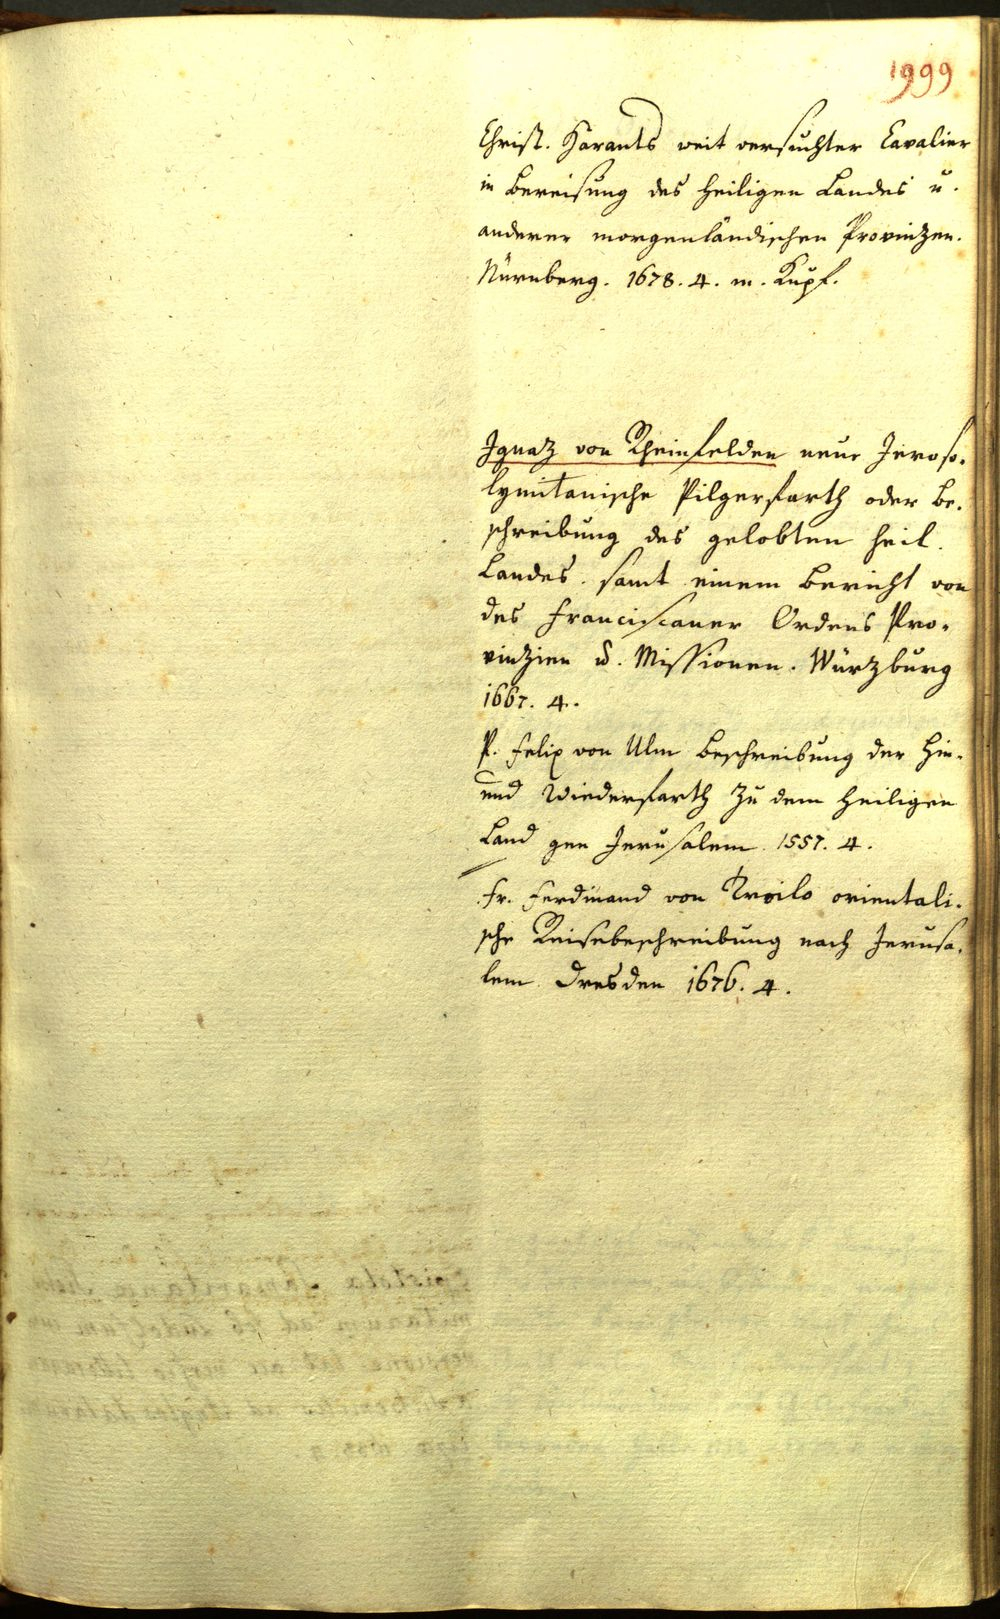 1999
Christ. Harants weit versuchter Cavalier
in Bereisung des heiligen Landes u.
anderer morgenländischen Provinzen.
Nürnberg. 1678. 4. m. Kupf.
Ignaz von Rheinfelden neue Jeroso-
lymitanische Pilgerfarth oder Be-
schreibung des gelobten heil.
Landes. samt einem Bericht von
des Franciscaner Ordens Pro-
vinzien u. Missionen. Würzburg
1667. 4.
P. Felix von Ulm Beschreibung der Hin-
und Wiederfarth zu dem heiligen
Land gen Jerusalem. 1557. 4.
Fr. Ferdinand von Troilo orientali-
sche Reisebeschreibung nach Jerusa-
lem. Dresden 1676. 4.